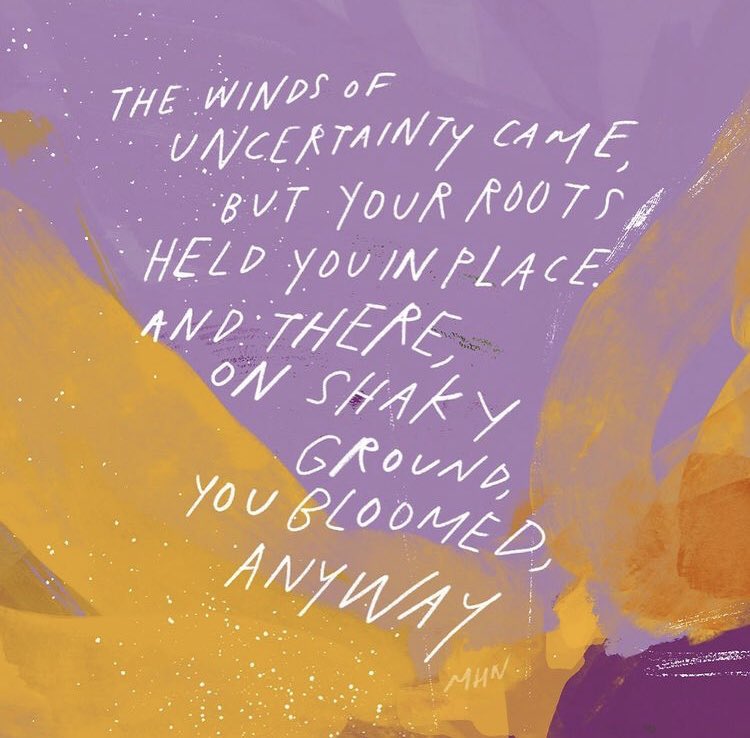 THE WINDS OF
UNCERTAINTY CAME,
BUT YOUR ROOTS
HELD YOU IN PLACE.
AND THERE,
ON SHAKY
GROUND,
YOU BLOOMED,
ANYWAY
MHN